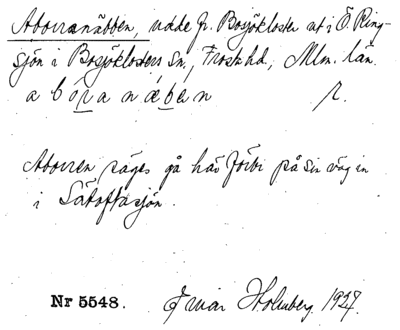 Aborranäbben, udde fr. Bosjökloster ut i Ö. Ring-
sjön i Bosjöklosters sn., Frosta hd., Mlm. län.
a bóranæ̀ben r.
Aborren säges gå här förbi på sin väg in
i Sätoftasjön.
Nr 5548. Ivar Holmberg. 1927.